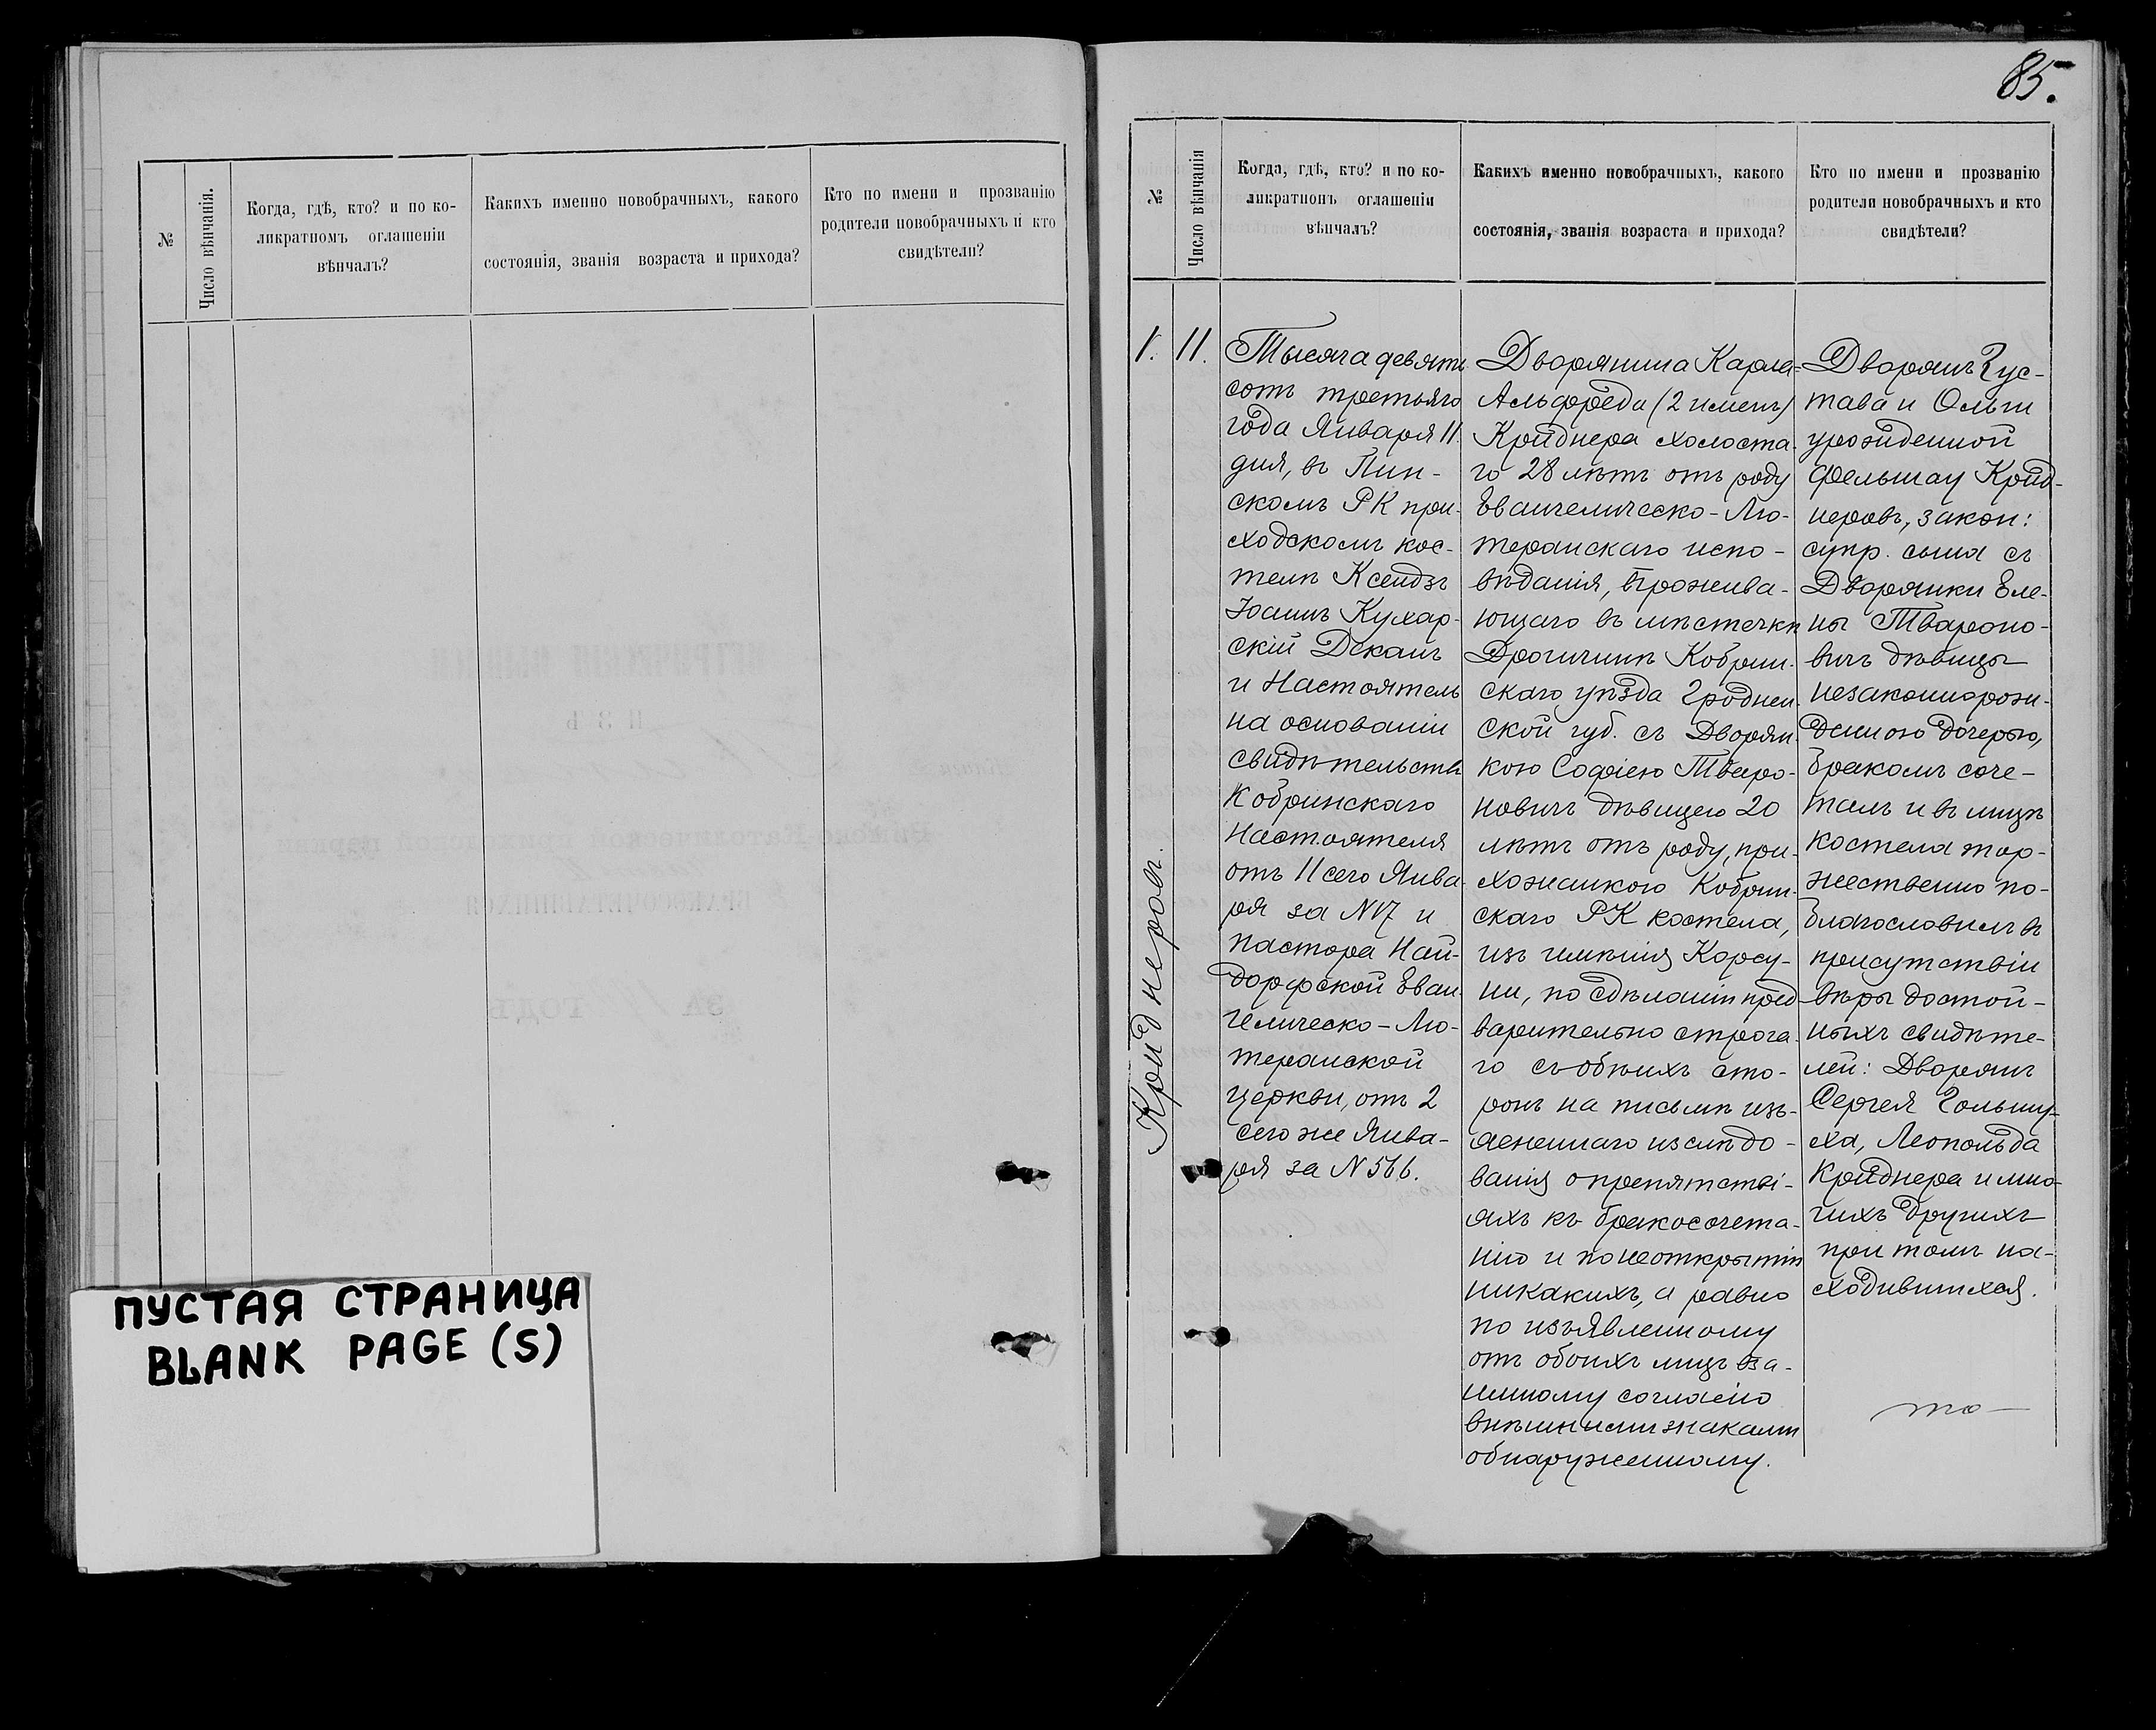 №
Число вѣнчанія.
Когда, гдѣ, кто? и по ко-
ликратномъ оглашеніи
вѣнчалъ?
Какихъ именно новобрачныхъ, какого
состоянія, званія возраста и прихода?
Кто по имени и прозванію
родители новобрачныхъ и кто
свидѣтели?
ПУСТАЯ СТРАНИЦА
BLANK PAGE (S)
85.
№
Число вѣнчанія
Когда, гдѣ, кто? и по ко-
ликратномъ оглашеніи
вѣнчалъ?
Какихъ именно новобрачныхъ, какого
состоянія, званія возраста и прихода?
Кто по имени и прозванію
родители новобрачныхъ и кто
свидѣтели?
1.
11.
Крйднеровъ.
Тысяча девять
сотъ третьяго
года Января 11.
дня, въ Пин-
скомъ РК при-
ходскомъ кос-
телѣ Ксендзъ
Іоаннъ Кухар-
скій Деканъ
и Настоятель
на основаніи
свидѣтельствъ
Кобринскаго
Настоятеля
отъ 11 сего Янва-
ря за N17 и
пастора Най-
дорфской Еван-
гелическо-Лю-
теранской
церкви, отъ 2
сего же Янва-
ря за N566.
Дворянина Карла-
Альфреда (2 именъ)
Крйднера холоста-
го 28 лѣтъ отъ роду
Евангелическо-Лю-
теранскаго испо-
вѣданія, прожива-
ющаго въ мѣстечкѣ
Дрогичинѣ Кобрин-
скаго уѣзда Гроднен-
ской губ. съ Дворян-
кою Софіею Тваро-
новичъ дѣвицею 20
лѣтъ отъ роду, при-
хожанкою Кобрин-
скаго РК костела,
изъ имѣнія Корсу-
ни, по сдѣланіи пред-
варительно строга-
го съ обѣихъ сто-
ронъ на письмѣ изъ-
ясненнаго изслѣдо-
ванія о препятстві-
яхъ къ бракосочета-
нію и по неоткрытіи
никакихъ, а равно
по изъявленному
отъ обоихъ лицъ вза-
имному согласію
внѣшними знаками
обнаруженному.
Дворянъ Гус-
тава и Ольги
урожденной
Фельшау Крйд-
неровъ, закон:
супр. сына съ
Дворянки Еле-
ны Твароно-
вичъ дѣвицы
незаконнорож-
денною дочерью,
бракомъ соче-
талъ и въ лицѣ
костела тор-
жественно по-
благословилъ въ
присутствіи
вѣры достой-
ныхъ свидѣте-
лей: Дворянъ
Сергея Гольшу-
ха, Леопольда
Крйднера и мно-
гихъ другихъ
при томъ на-
ходившихся.